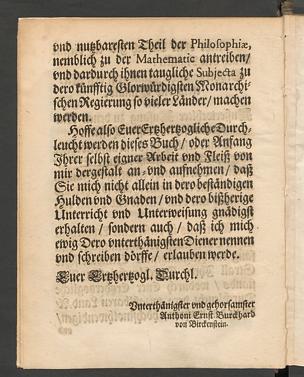 vnd nutzbaresten Theil der Philosophiæ,
nemblich zu der Mathematic antreiben/
vnd dardurch ihnen taugliche Subjecta zu
dero künfftig Glorwürdigsten Monarchi-
schen Regierung so vieler Länder/ machen
werden.
Hoffe also Euer Ertzhertzogliche Durch-
leucht werden dieses Buch/ oder Anfang
Ihrer selbst eigner Arbeit vnd Fleiß von
mir dergestalt an- vnd auffnehmen/ daß
Sie mich nicht allein in dero beständigen
Hulden vnd Gnaden/ vnd dero bißherige
Unterricht vnd Unterweisung gnädigst
erhalten/ sondern auch/ daß ich mich
ewig Dero vnterthänigsten Diener nennen
vnd schreiben dörffe/ erlauben werde.
Euer Ertzhertzogl. Durchl.
Vnterthänigster vnd gehorsamster
Anthoni Ernst Burckhard
von Birckenstein.